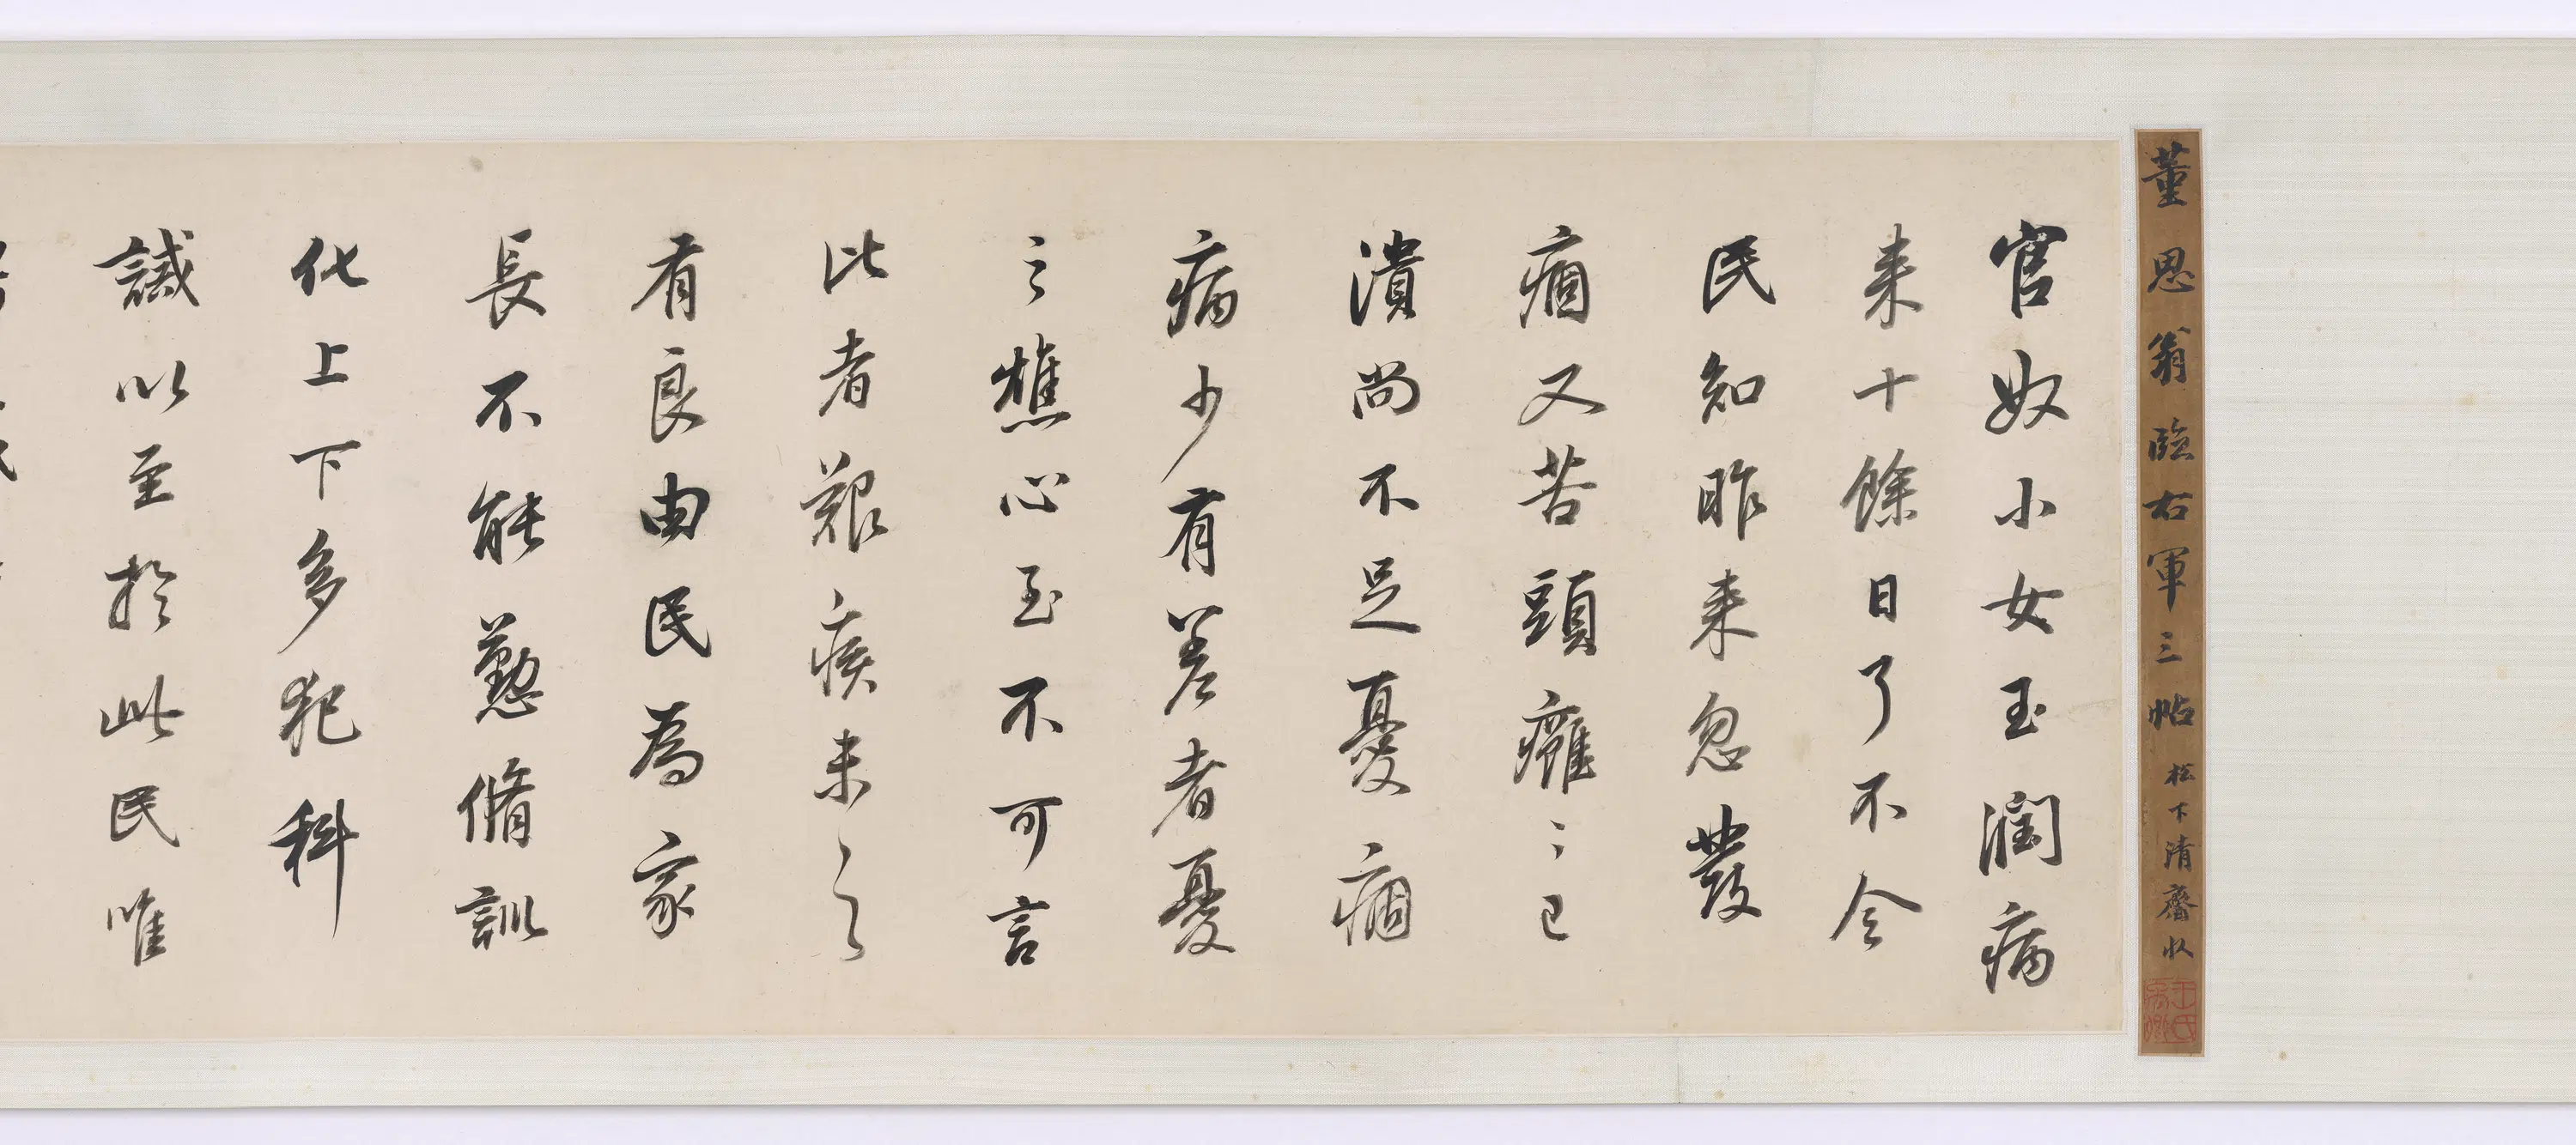 董思翁臨右軍三帖 松下清齋收
官奴小女玉潤病
来十餘日了不令
民知昨来忽發
痼又苦頭癰〻已
潰尚不足憂痼
病少有差者憂
之燋心至不可言
比者艱疾未之
有良由民為家
長不能懃脩訓
化上下多犯科
誡以至於此民唯